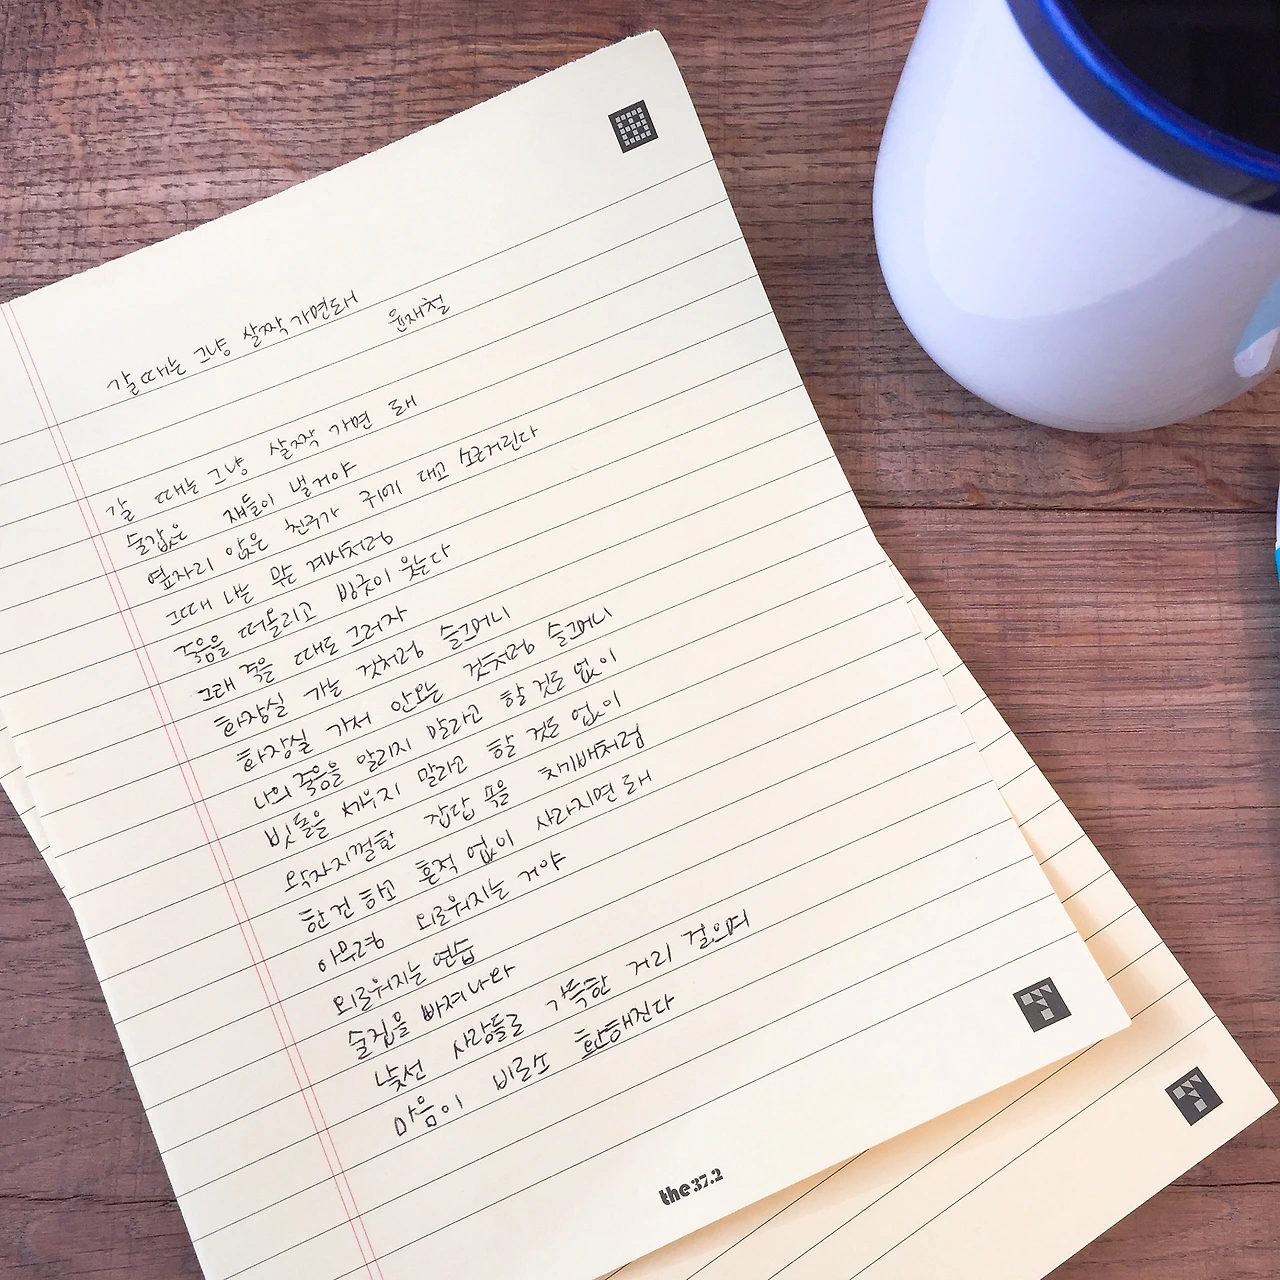 갈 때는 그냥 살짝 가면 돼
윤재철
갈 때는 그냥 살짝 가면 돼
술값은 쟤들이 낼 거야
옆자리 앉은 친구가 귀에 대고 소곤거린다
그때 나는 무슨 계시처럼
죽음을 떠올리고 빙긋이 웃는다
그래 죽을 때도 그러자
화장실 가는 것처럼 슬그머니
화장실 가서 안 오는 것처럼 슬그머니
나의 죽음을 알리지 말라고 할 것도 없이
빗돌을 세우지 말라고 할 것도 없이
왁자지껄한 잡답 속을 치기배처럼
한 건 하고 흔적 없이 사라지면 돼
아무렴 외로워지는 거야
외로워지는 연습
술집을 빠져나와
낯선 사람들로 가득한 거리 걸으며
마음이 비로소 환해진다
the 37.2